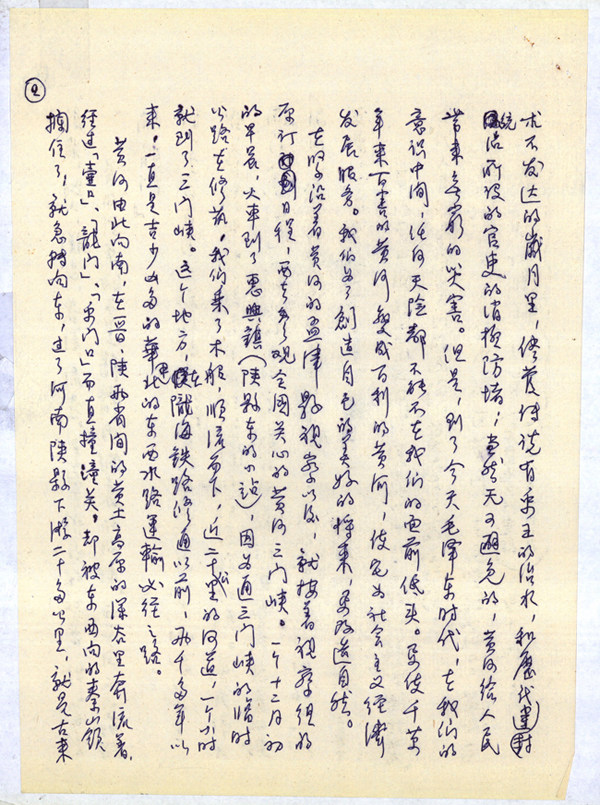 ②
术不发达的岁月里，尽管传说有禹王的治水，和历代封建
统治所设的官吏的消极防堵；当然无可避免的，黄河给人民
带来无穷的灾害。但是，到了今天毛泽东时代，在我们的
意识中间，任何天险都不能不在我们的面前低头。要使千万
年来百害的黄河变成百利的黄河，使它为社会主义经济
发展服务。我们为了创造自己的美好的将来，要改造自然。
在坚沿着黄河的孟津县视察以后，就按着视察组的
原订日程，西去参观全国关心的黄河三门峡。一个十二月初
的早晨，火车到了惠兴镇（陕县东的小站），因为通三门峡的临时
公路在修筑，我们乘了木船，顺流而下，近二十公里的河道，一个小时
就到了三门峡。这个地方，在陇海铁路修通以前，两千多年以
来，一直是古少山多的华北的东西水路运输必经之路。
黄河由此向南，在晋、陕两省间的黄土高原的深谷里奔流着，
经过「壶口」、「龙门」、「禹门口」而直撞潼关。却被东西向的秦山领
挡住了，就急转向东，过了河南陕县下游二十多公里，就是古来